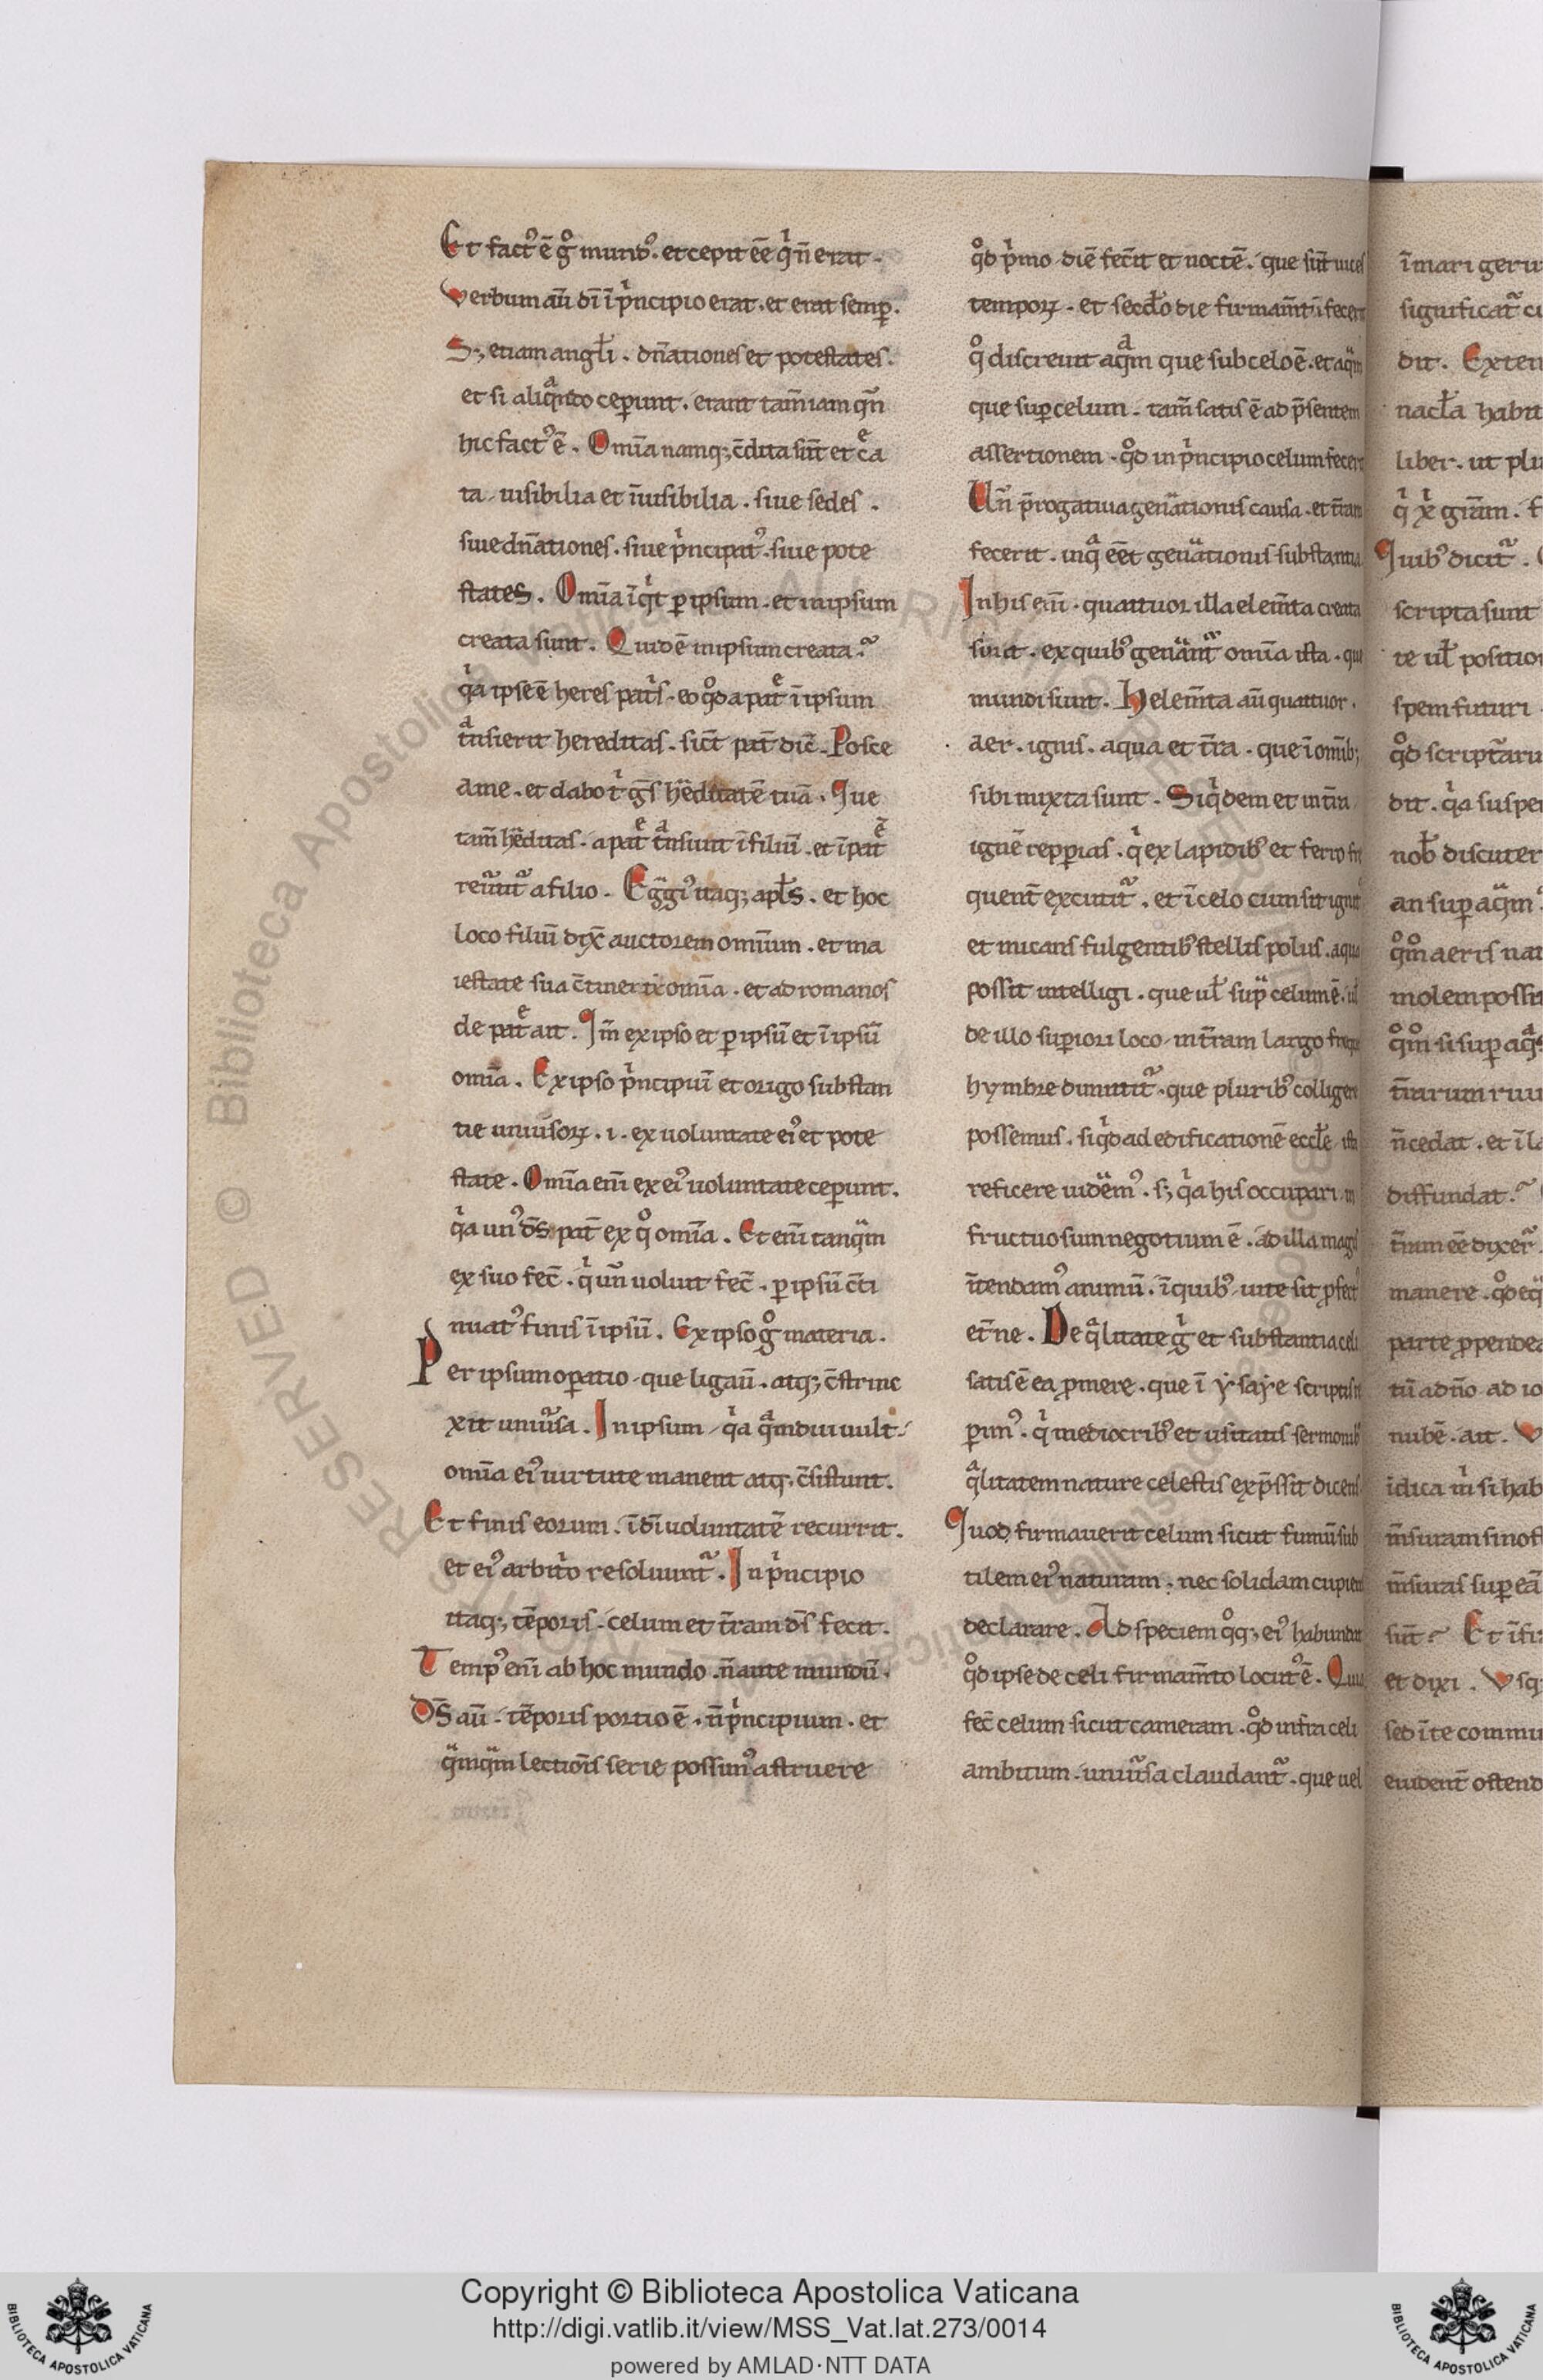 Et factꝰ ē gͦ mundꝰ. et cepit eē qͥ n̄ erat.
Verbum aū dī ī pͥncipio erat. et erat semꝑ.
S; etiam angłi. dn̄ationes et potestates.
et si aliqͣndo ceperunt. erant tam̄ iam qn̄
hic factꝰ ē. Om̄ia namq; c̄dita sūt et cͤa
ta. uisibilia et īuisibilia. siue sedes.
siue dn̄ationes. siue pͥncipatꝰ. siue pote
states. Om̄ia īqͥt ꝑ ipsum. et in ipsum
creata sunt. Quid ē in ipsum creata?
qͥa ipse ē heres patͥs. eo qͦd a patͤ ī ipsum
tͣnsierit hereditas. sic̄t pat̄ dic̄. Posce
a me. et dabo tͥ gn̄s h̄editatē tuā. Que
tam̄ h̄editas. a patͤ tͣnsiuit ī filiū. et ī patͤ
reūtit᷑ a filio. Egͣgiꝰ itaq; apłs. et hoc
loco filiū dix̄ auctorem omnium. et ma
iestate sua c̄tinentē om̄ia. et ad romanos
de patͤ ait. Qm̄ ex ipso et ꝑ ipsū et ī ipsū
om̄ia. Ex ipso pͥncipiū et origo substan
tie uniūsoꝝ. i. ex uoluntate eiꝰ et pote
state. Om̄ia eni ex eiꝰ uoluntate ceperunt.
qͥa unꝰ dс̄ pat̄ ex qͦ om̄ia. Et eni tanqͣm
ex suo fec̄. qͥ un̄ uoluit fec̄. ꝑ ipsū c̄ti
nuatꝰ finis ī ipsū. Ex ipso gͦ materia.
Per ipsum operatio. que ligauit. atq; c̄strinc
xit uniūsa. In ipsum. qͥa qͣmdiu uult.
om̄ia eiꝰ uirtute manent atq; c̄sistunt.
Et finis eorum. ī dī uoluntatē recurrit.
et eiꝰ arbitͥo resoluunt᷑. In pͥncipio
itaq; tēporis. celum et tr̄am ds̄ fecit.
Tempꝰ eni ab hoc mundo. n̄ ante mundū.
Dies aū. tēporis portio ē. n̄ pͥncipium. et
qͣmqͣm lectionis serie possimꝰ astruere
qͦd pͥmo diē fec̄it et noctē. que sūt uices
tempoꝝ. et sec̄do die firmam̄tū fecerit
qͦ discreuit aqͣm que sub celo ē. et aqͣm
que suꝑ celum. tam̄ satis ē ad p̄sentem
assertionem. qͦd in pͥncipio celum fecerit
Un̄ p̄rogatiua gen̄ationis causa. et tr̄am
fecerit. in qͣ eēt gen̄ationis substantia
In his eni. quattuor illa elem̄ta creata
sunt. ex quibꝰ gen̄ant᷑ omīa ista. que
mundi sunt. H elem̄ta aū quattuor.
aer. ignis. aqua et tr̄a. que ī omīb;
sibi mixta sunt. Siqͥdem et in tr̄a
ignē repperias. qͥ ex lapidibꝰ et ferro fre
quent̄ excutit᷑. et ī celo cum sit ignitꝰ
et micans fulgentibꝰ stellis polus. aqua
possit intelligi. que uł supͣ celum ē. uł
de illo superiori loco. in tr̄am largo frequ
hymbre dimittit᷑. que pluribꝰ colligere
possemus. siqͥd ad edificationē eccłe ista
reficere uidēmꝰ. s; qͥa his occupari in
fructuosum negotium ē. ad illa magis
ītendamꝰ animū. ī quibꝰ uite sit profectꝰ
et̄ne. De qͣlitate gͥ et substantia celi
satis ē ea promere. que ī ysaye scriptis
perimꝰ. qͥ mediocribꝰ et usitatis sermonibꝰ
qͣlitatem nature celestis exp̄ssit dicens
Quod firmauerit celum sicut fumū sub
tilem eiꝰ naturam: nec solidam cupiens
declarare. Ad speciem qͦq; eiꝰ habundat
qͦd ipse de celi firmam̄to locutꝰ ē. Quia
fec̄ celum sicut cameram. qͦd infra celi
ambitum. uniūsa claudant᷑. que uel
ī mari geru
significat᷑ cu
dit. Exten
nacła habit
liber. ut plu
qͥ xͥ gr̄am. f
Quibꝰ dicit᷑.
scripta sunt
te uł position
spem futuri
qͦd scriptāru
dit. qͥa suspe
nob̄ discuter
an suꝑ aqͣm
qͦm aeris nat
molem possit
qͦm si suꝑ aqͣs
tr̄arum ruu
n̄ cedat. et ī la
diffundat.
tr̄am eē dixer᷑
manere. qͦd eqͣ
parte ꝓpendea
tū ad n̄o ad io
nubē. ait.
idica mͥ si hab
m̄suram sinost
m̄suras suꝑ eā
sūt? Et ī fir
et dixi. Usq;
sed ī te commu
euident̄ ostend
Copyright © Biblioteca Apostolica Vaticana
http://digi.vatlib.it/view/MSS_Vat.lat.273/0014
powered by AMLAD·NTT DATA
BIBLIOTECA APOSTOLICA VATICANA
BIBLIOTECA APOSTOLICA VATICANA